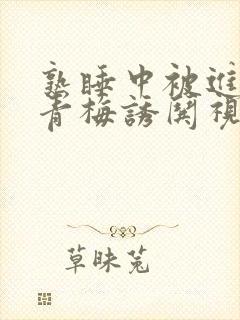 熟睡中被進
青梅誘関視
草昧兔